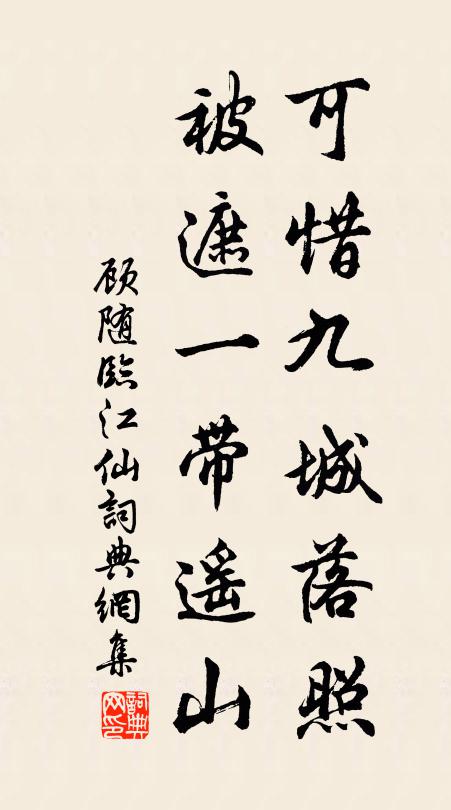 可惜九城落照
被遮一带遥山
顾随臨江仙詞典網集
詞典网印